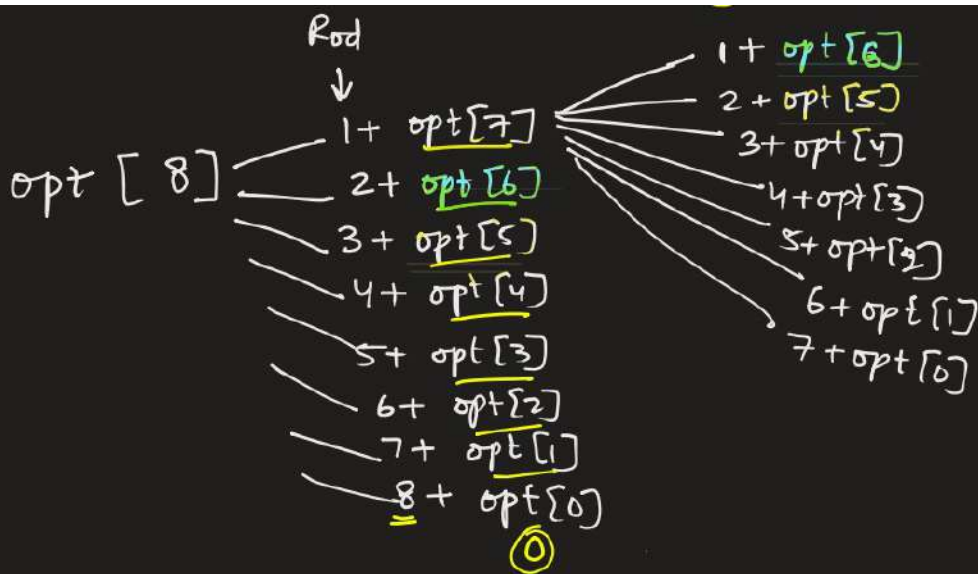 Rod
opt [ 8 ]
1 + opt [7]
2 + opt [6]
3 + opt [5]
4 + opt [4]
5 + opt [3]
6 + opt [2]
7 + opt [1]
8 + opt [0]
0
1 + opt [6]
2 + opt [5]
3 + opt [4]
4 + opt [3]
5 + opt [2]
6 + opt [1]
7 + opt [0]